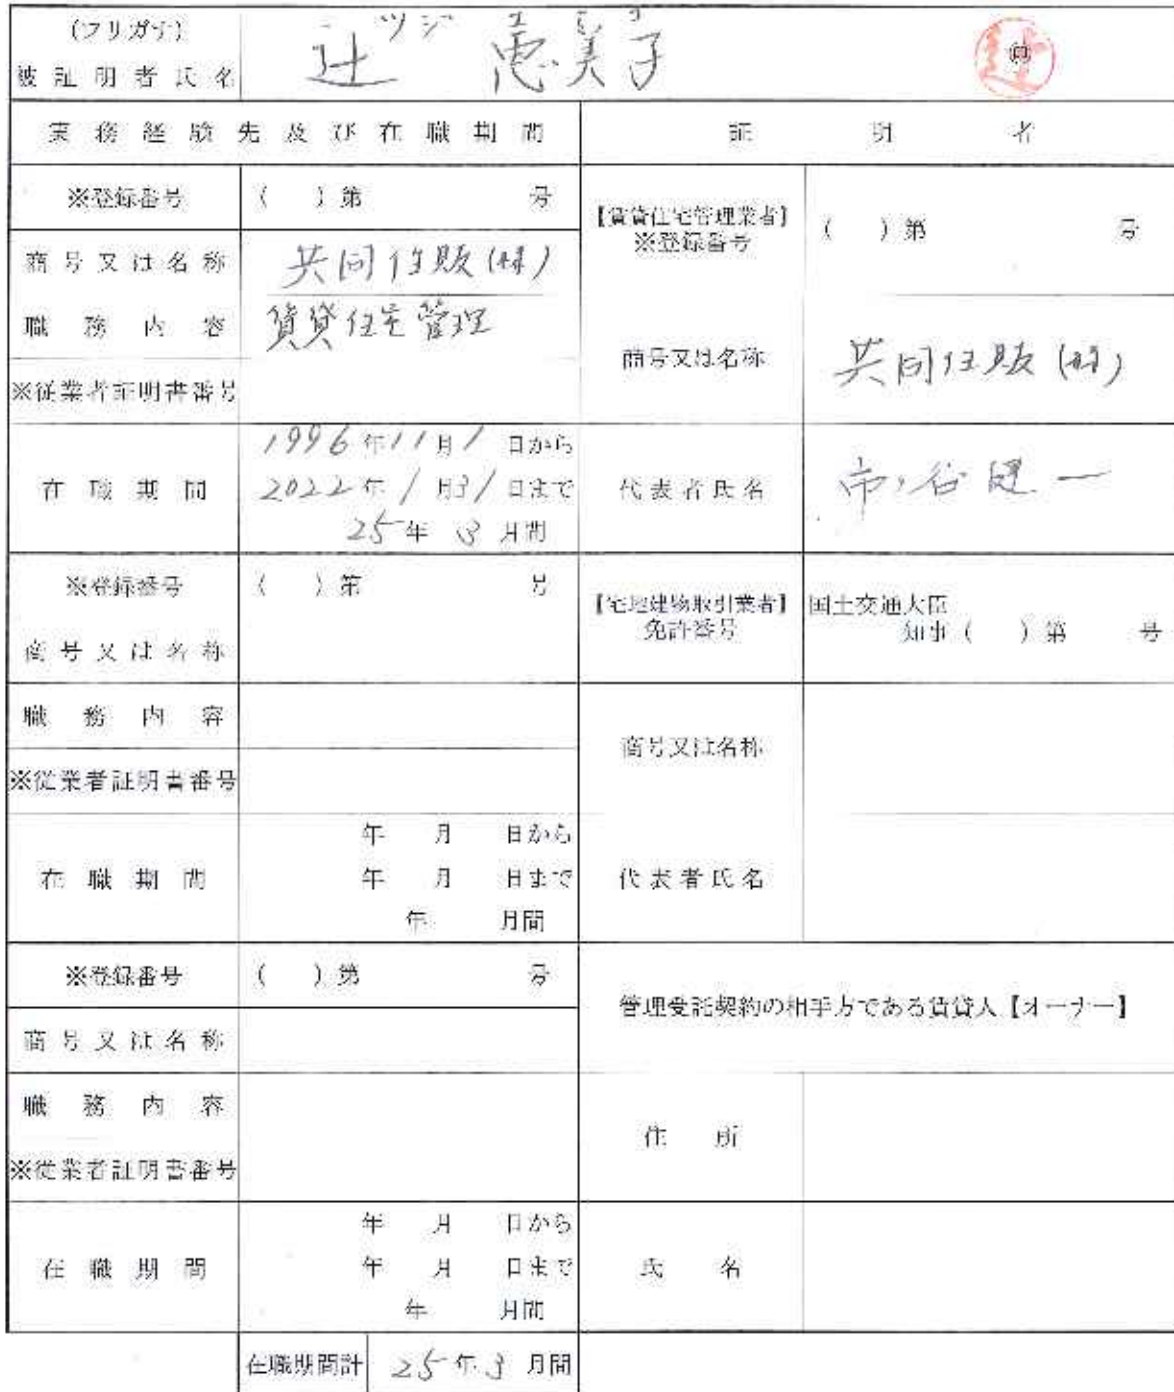 (フリガナ) ツジ エミコ
被証明者氏名 辻 恵美子 ㊞ 辻
業務経験先及び在職期間 証明者
※登録番号 ( )第 号
【賃貸住宅管理業者】 ※登録番号 ( )第 号
商号又は名称 共同住販(株)
職務内容 賃貸住宅管理
商号又は名称 共同住販(株)
※従業者証明書番号
在職期間 1996年11月1日から
2022年1月31日まで
25年3月間
代表者氏名 市谷健一
※登録番号 ( )第 号
【宅地建物取引業者】 免許番号 国土交通大臣
知事( )第 号
商号又は名称
職務内容
商号又は名称
※従業者証明書番号
在職期間 年 月 日から
年 月 日まで
年 月間
代表者氏名
※登録番号 ( )第 号
管理受託契約の相手方である賃貸人【オーナー】
商号又は名称
職務内容
住所
※従業者証明書番号
在職期間 年 月 日から
年 月 日まで
年 月間
氏名
在職期間計 25年3月間